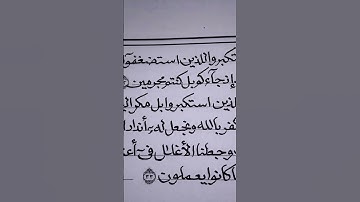 تكبروا للذين استضعفوا
إذ جاءكم بل كنتم مجرمين
لذين استكبروا بل مكر ال
كفر بالله ونجعل له أندادا
وجعلنا الأغلال في أعنا
كانوا يعملون ٣٣